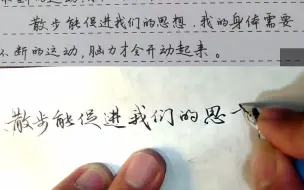 散步能促进我们的思想,我的身体需要
不断的运动,脑力才会开动起来。
散步能促进我们的思